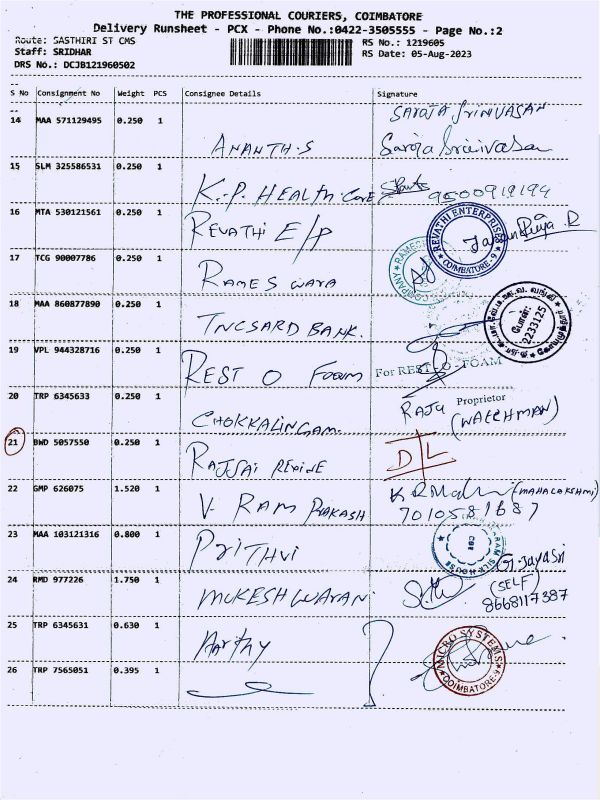 THE PROFESSIONAL COURIERS, COIMBATORE
Delivery Runsheet - PCX - Phone No.:0422-3505555 - Page No.:2
Route: SASTHIRI ST CMS
RS No.: 1219605
Staff: SRIDHAR
RS Date: 05-Aug-2023
DRS No.: DCJB121960502
S No Consignment No Weight PCS Consignee Details Signature
SAROJA SRINIVASAN
14 MAA 571129495 0.250 1 ANANTH.S Saroja Srinivasan
15 SLM 325586531 0.250 1 K.P. HEALTH CARE
16 MTA 530121561 0.250 1 REVATHI E/P
REVATHI ENTERPRISES COIMBATORE-9
17 TCG 90007786 0.250 1 RAMESWARA
COMPANY
18 MAA 860877890 0.250 1 TNCSARD BANK.
போன்: 2233125
19 VPL 944328716 0.250 1 REST O FOUM
For REST-O-FOAM
Proprietor
20 TRP 6345633 0.250 1 CHOKKALINGAM. RAJU (WATCHMAN)
21 BWD 5057550 0.250 1 D/L
22 GMP 626075 1.520 1 V. RAM PRAKASH (MAHALAKSHMI)
7010581687
23 MAA 103121316 0.800 1 PRITHVI
SILK HOUSE CBE
G. JayaSri
(SELF)
24 RMD 977226 1.750 1 MUKESHWARAN 8668117387
25 TRP 6345631 0.630 1 Aarthy
MICRO SYSTEMS COIMBATORE-9
26 TRP 7565051 0.395 1